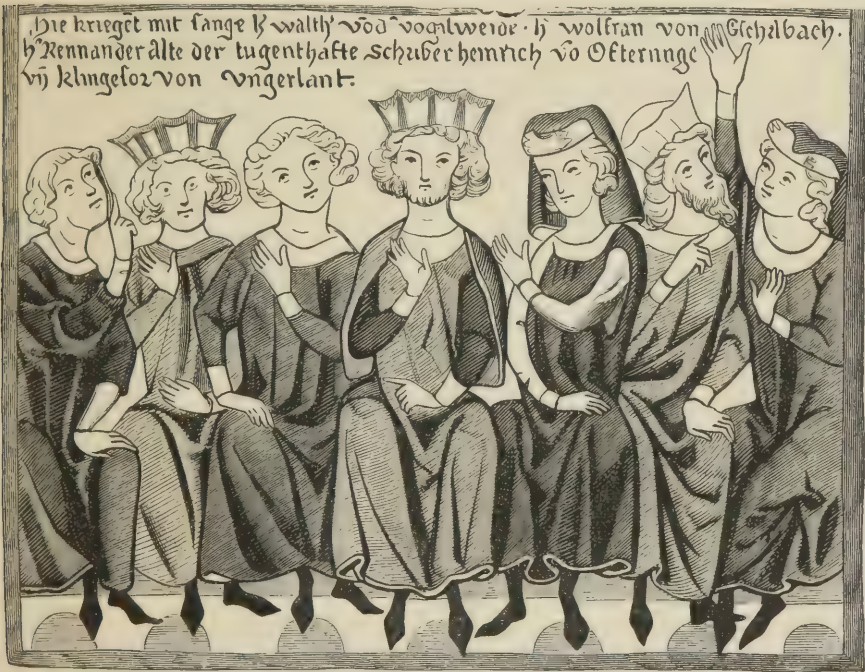 Hie krieget mit sange h̄ walth' võd' vogilweide · h̄ wolfran von Eschelbach.
h̄ Renmander alte der tugenthafte schriber heinrich võ Ofterninge
vñ klingesor von vngerlant.